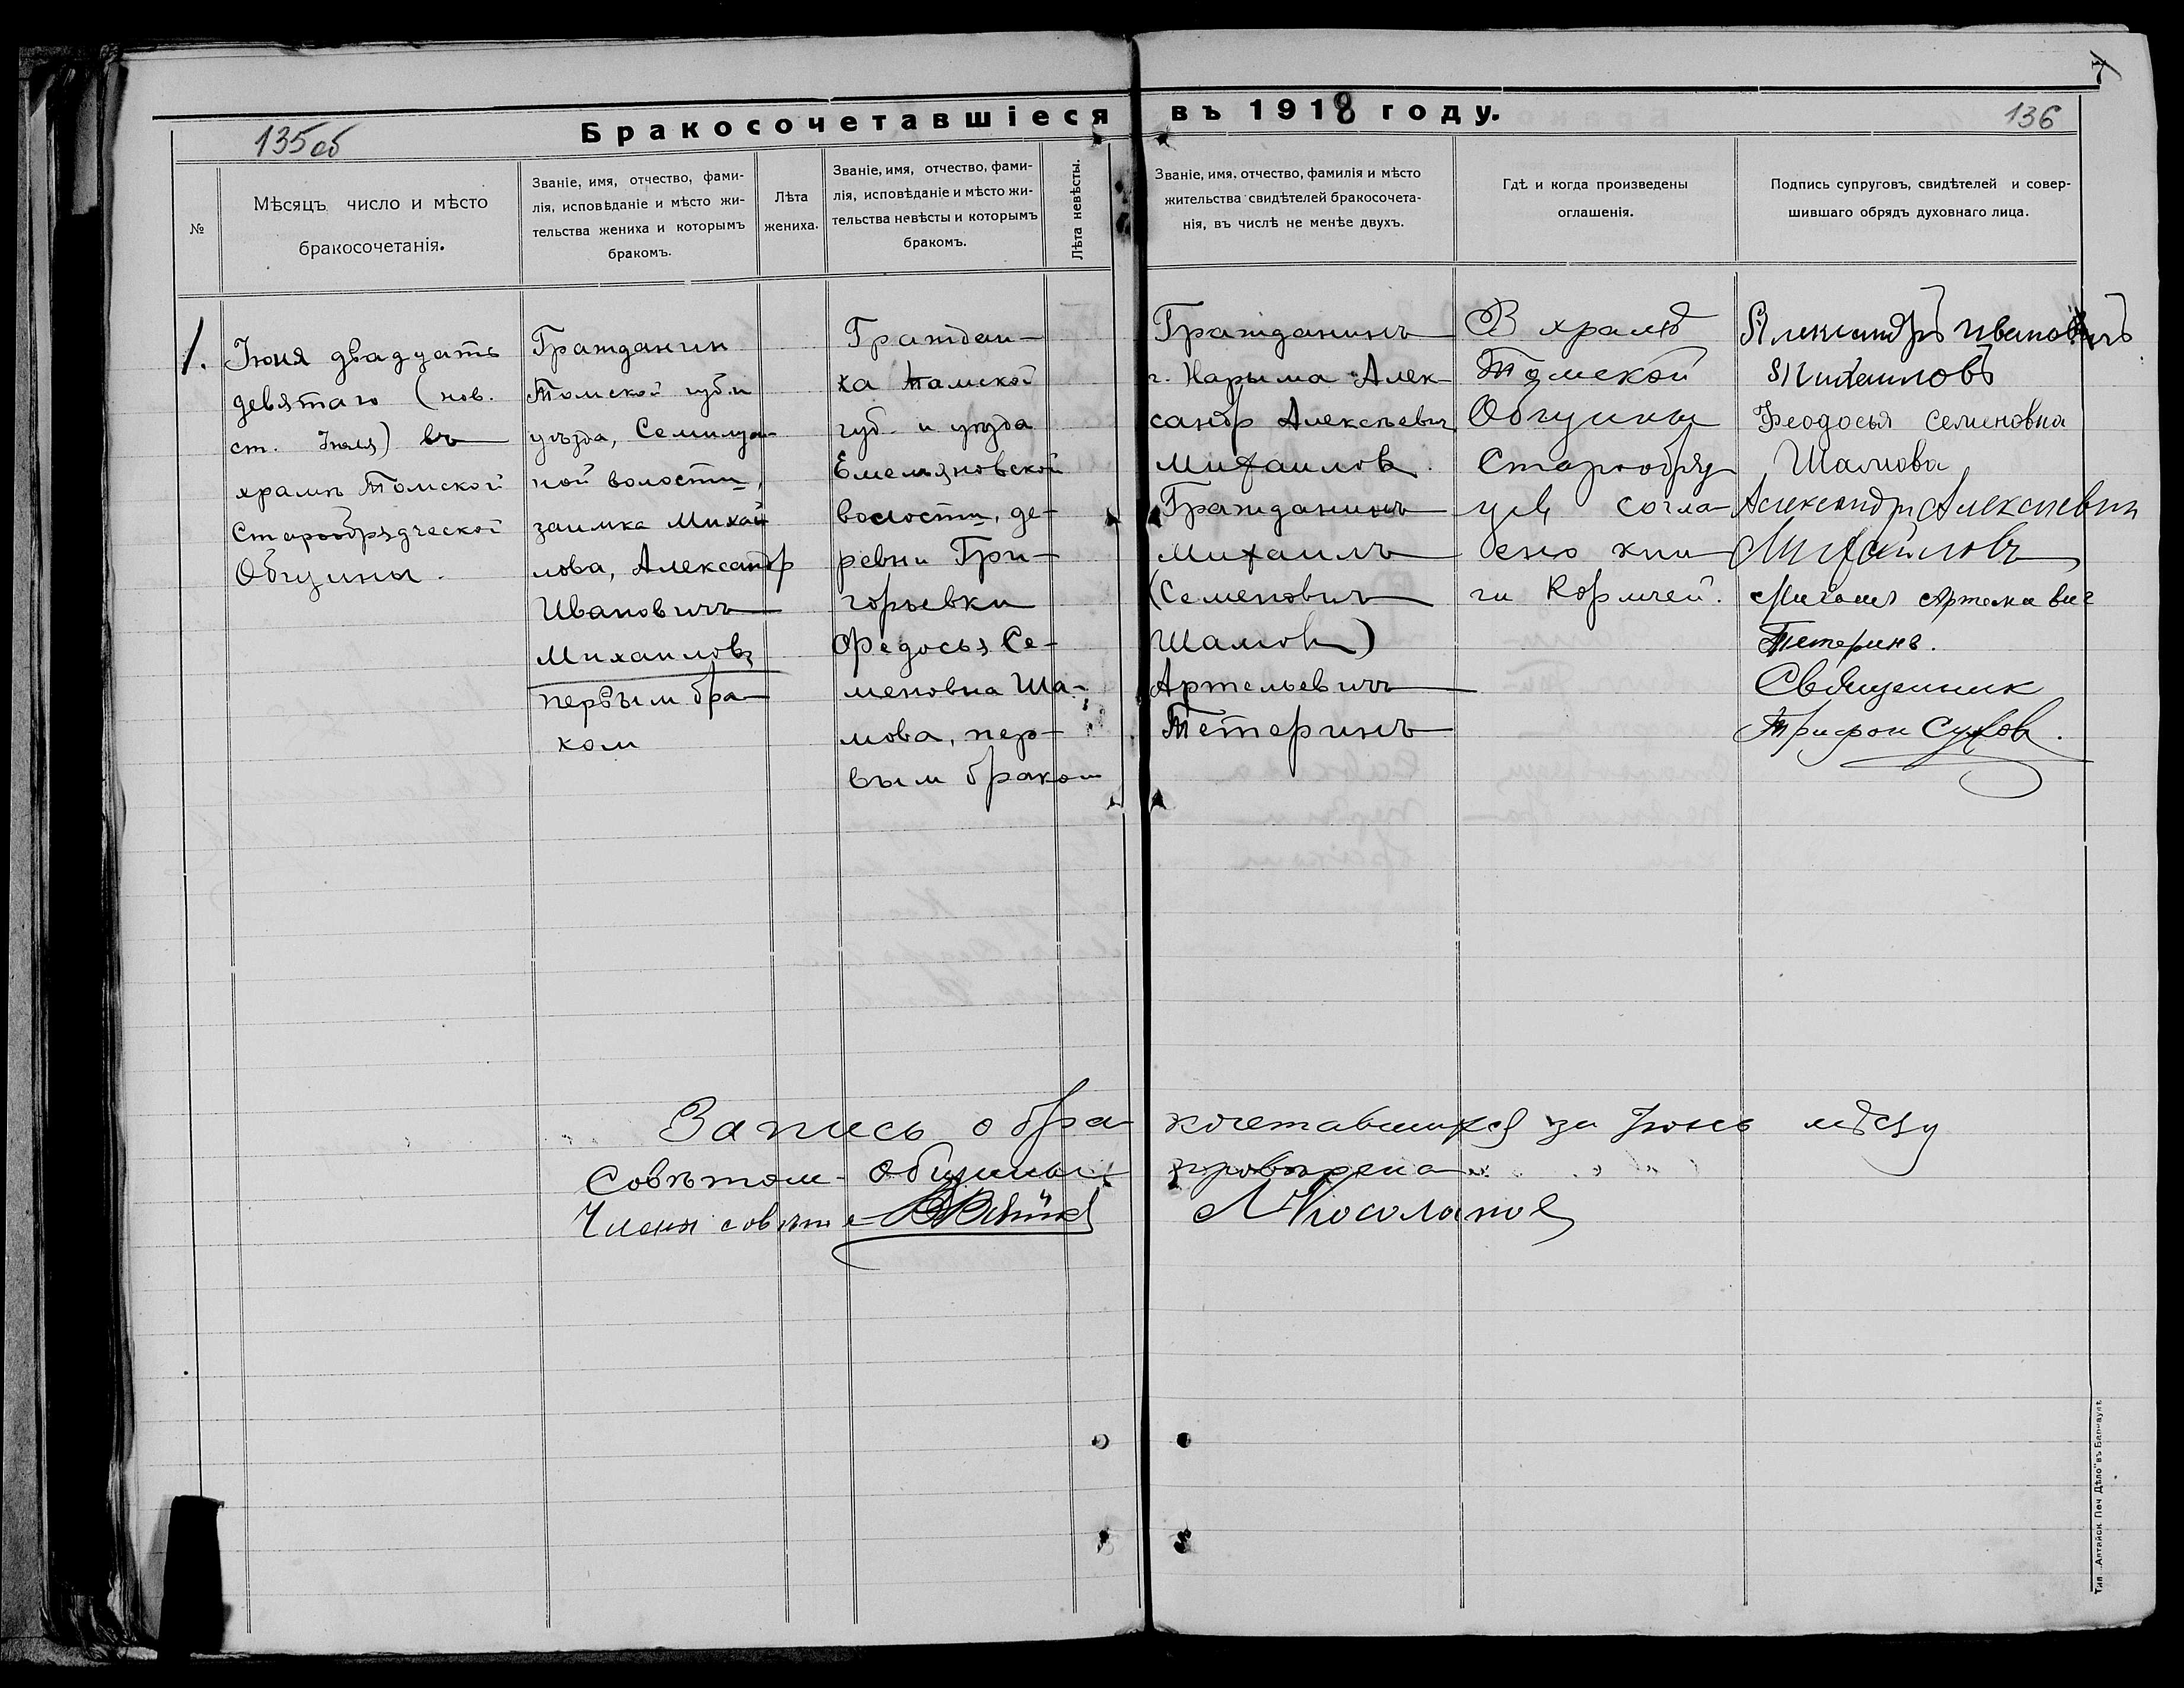 7
Бракосочетавшіеся въ 1918 году.
135об
136
№
Мѣсяцъ число и мѣсто
бракосочетанія.
Званіе, имя, отчество, фами-
лія, исповѣданіе и мѣсто жи-
тельства жениха и которымъ
бракомъ.
Лѣта
жениха.
Званіе, имя, отчество, фами-
лія, исповѣданіе и мѣсто жи-
тельства невѣсты и которымъ
бракомъ.
Лѣта невѣсты.
Званіе, имя, отчество, фамилія и мѣсто
жительства свидѣтелей бракосочета-
нія, въ числѣ не менѣе двухъ.
Гдѣ и когда произведены
оглашенія.
Подпись супруговъ, свидѣтелей и совер-
шившаго обрядъ духовнаго лица.
1.
Іюня двадцать
девятаго (нов.
ст. Іюня) въ
храмѣ Томской
Старообрядческой
Общины.
Гражданин
Томской губ. и
уѣзда, Семилуж-
ной волости,
заимка Михай
лова, Александр
Ивановичъ
Михаиловъ
первым бра
ком
Граждан-
ка Томской
губ. и уѣзда
Емельяновской
волости, де-
ревни Гри-
горьевки
Федосья Се-
меновна Ша-
мова, пер-
вым браком
Гражданинъ
г. Нарыма Алек-
сандр Алексѣевич
Михаилов.
Гражданинъ
Михаилъ
(Семеновичъ
Шамов)
Артемьевичъ
Тетеринъ
В храмѣ
Томской
Общины
Старообряд
цев согла-
сно кни
ги Кормчей.
Александръ Ивановичъ
Михаиловъ
Феодосья Семеновна
Шамова
Александр Алексеевич
Михайловъ
Михаил Артемавич
Тетеринъ.
Священник
Трифон Сухов.
Запись о бра кочетавшихся за Іюнь мѣсяц
Совѣтом Общины провѣрена
Члены совѣта А Косолапов
Тип. „Алтайск. Печ. Дѣло" въ Барнаулѣ.